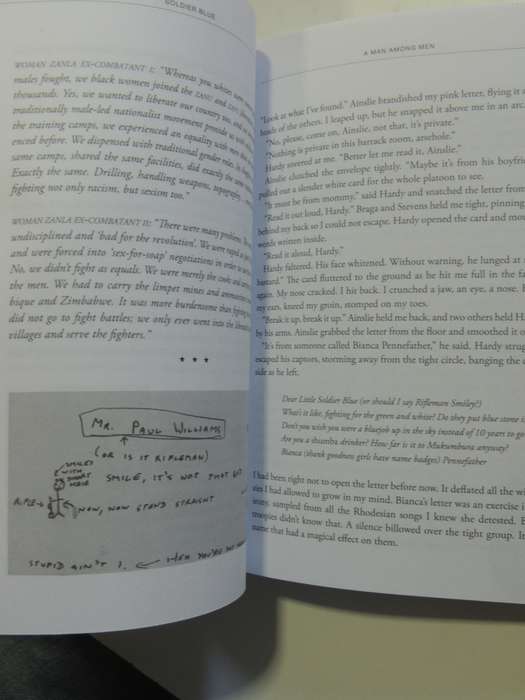 SOLDIER BLUE
WOMAN ZANLA EX-COMBATANT I: "Whereas you whites were
males fought, we black women joined the ZANU and
thousands. Yes, we wanted to liberate our country too, and
traditionally male-led nationalist movement provide us with
the training camps, we experienced an equality with men
enced before. We dispensed with traditional gender roles.
same camps, shared the same facilities, did exactly the same
Exactly the same. Drilling, handling weapons, topography,
fighting not only racism, but sexism too."
WOMAN ZANLA EX-COMBATANT II: "There were many problems.
undisciplined and 'bad for the revolution'. We were raped
and were forced into 'sex-for-soap' negotiations in order to
No, we didn't fight as equals. We were merely the cooks and
the men. We had to carry the limpet mines and ammunition
bique and Zimbabwe. It was more burdensome than fighting
did not go to fight battles; we only ever went into the liberated
villages and serve the fighters."
* * *
MR. PAUL WILLIAMS
(OR IS IT RIFLEMAN)
SMILEY
WITH
SHORT
HAIR
SMILE, IT'S NOT THAT BAD
RIFLE
NOW, NOW STAND STRAIGHT
STUPID AIN'T I. WHEN YOU'RE
A MAN AMONG MEN
"Look at what I've found." Ainslie brandished my pink letter, flying it
heads of the others. I leaped up, but he snapped it above me in an arc
"No, please, come on, Ainslie, not that, it's private."
"Nothing is private in this barrack room, arsehole."
Hardy towered at me. "Better let me read it, Ainslie,"
Ainslie clutched the envelope tightly. "Maybe it's from his boyfriend
pulled out a slender white card for the whole platoon to see.
"It must be from mommy," said Hardy and snatched the letter from
"Read it out loud, Hardy." Braga and Stevens held me tight, pinning
behind my back so I could not escape. Hardy opened the card and
words written inside.
"Read it aloud, Hardy."
Hardy faltered. His face whitened. Without warning, he lunged at
bastard." The card fluttered to the ground as he hit me full in the
again. My nose cracked. I hit back. I crunched a jaw, an eye, a nose.
my ears, kneed my groin, stomped on my toes.
"Break it up, break it up." Ainslie held me back, and two others held
by his arms. Ainslie grabbed the letter from the floor and smoothed it
"It's from someone called Bianca Pennefather," he said. Hardy
escaped his captors, storming away from the tight circle, banging the
side as he left.
Dear Little Soldier Blue (or should I say Rifleman Smiley?)
What's it like, fighting for the green and white? Do they put blue stone
Don't you wish you were a bluejob up in the sky instead of 10 years to go
Are you a shumba drinker? How far is it to Mukumbura anyway?
Bianca (thank goodness girls have name badges) Pennefather
I had been right not to open the letter before now. It deflated all the
ies I had allowed to grow in my mind. Bianca's letter was an exercise
sampled from all the Rhodesian songs I knew she detested.
troopies didn't know that. A silence billowed over the tight group. It
name that had a magical effect on them.